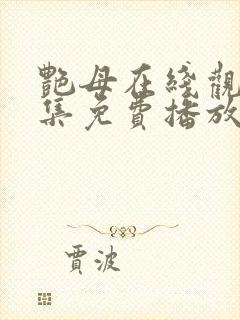 艷母在綫觀
集免費播放
賈波